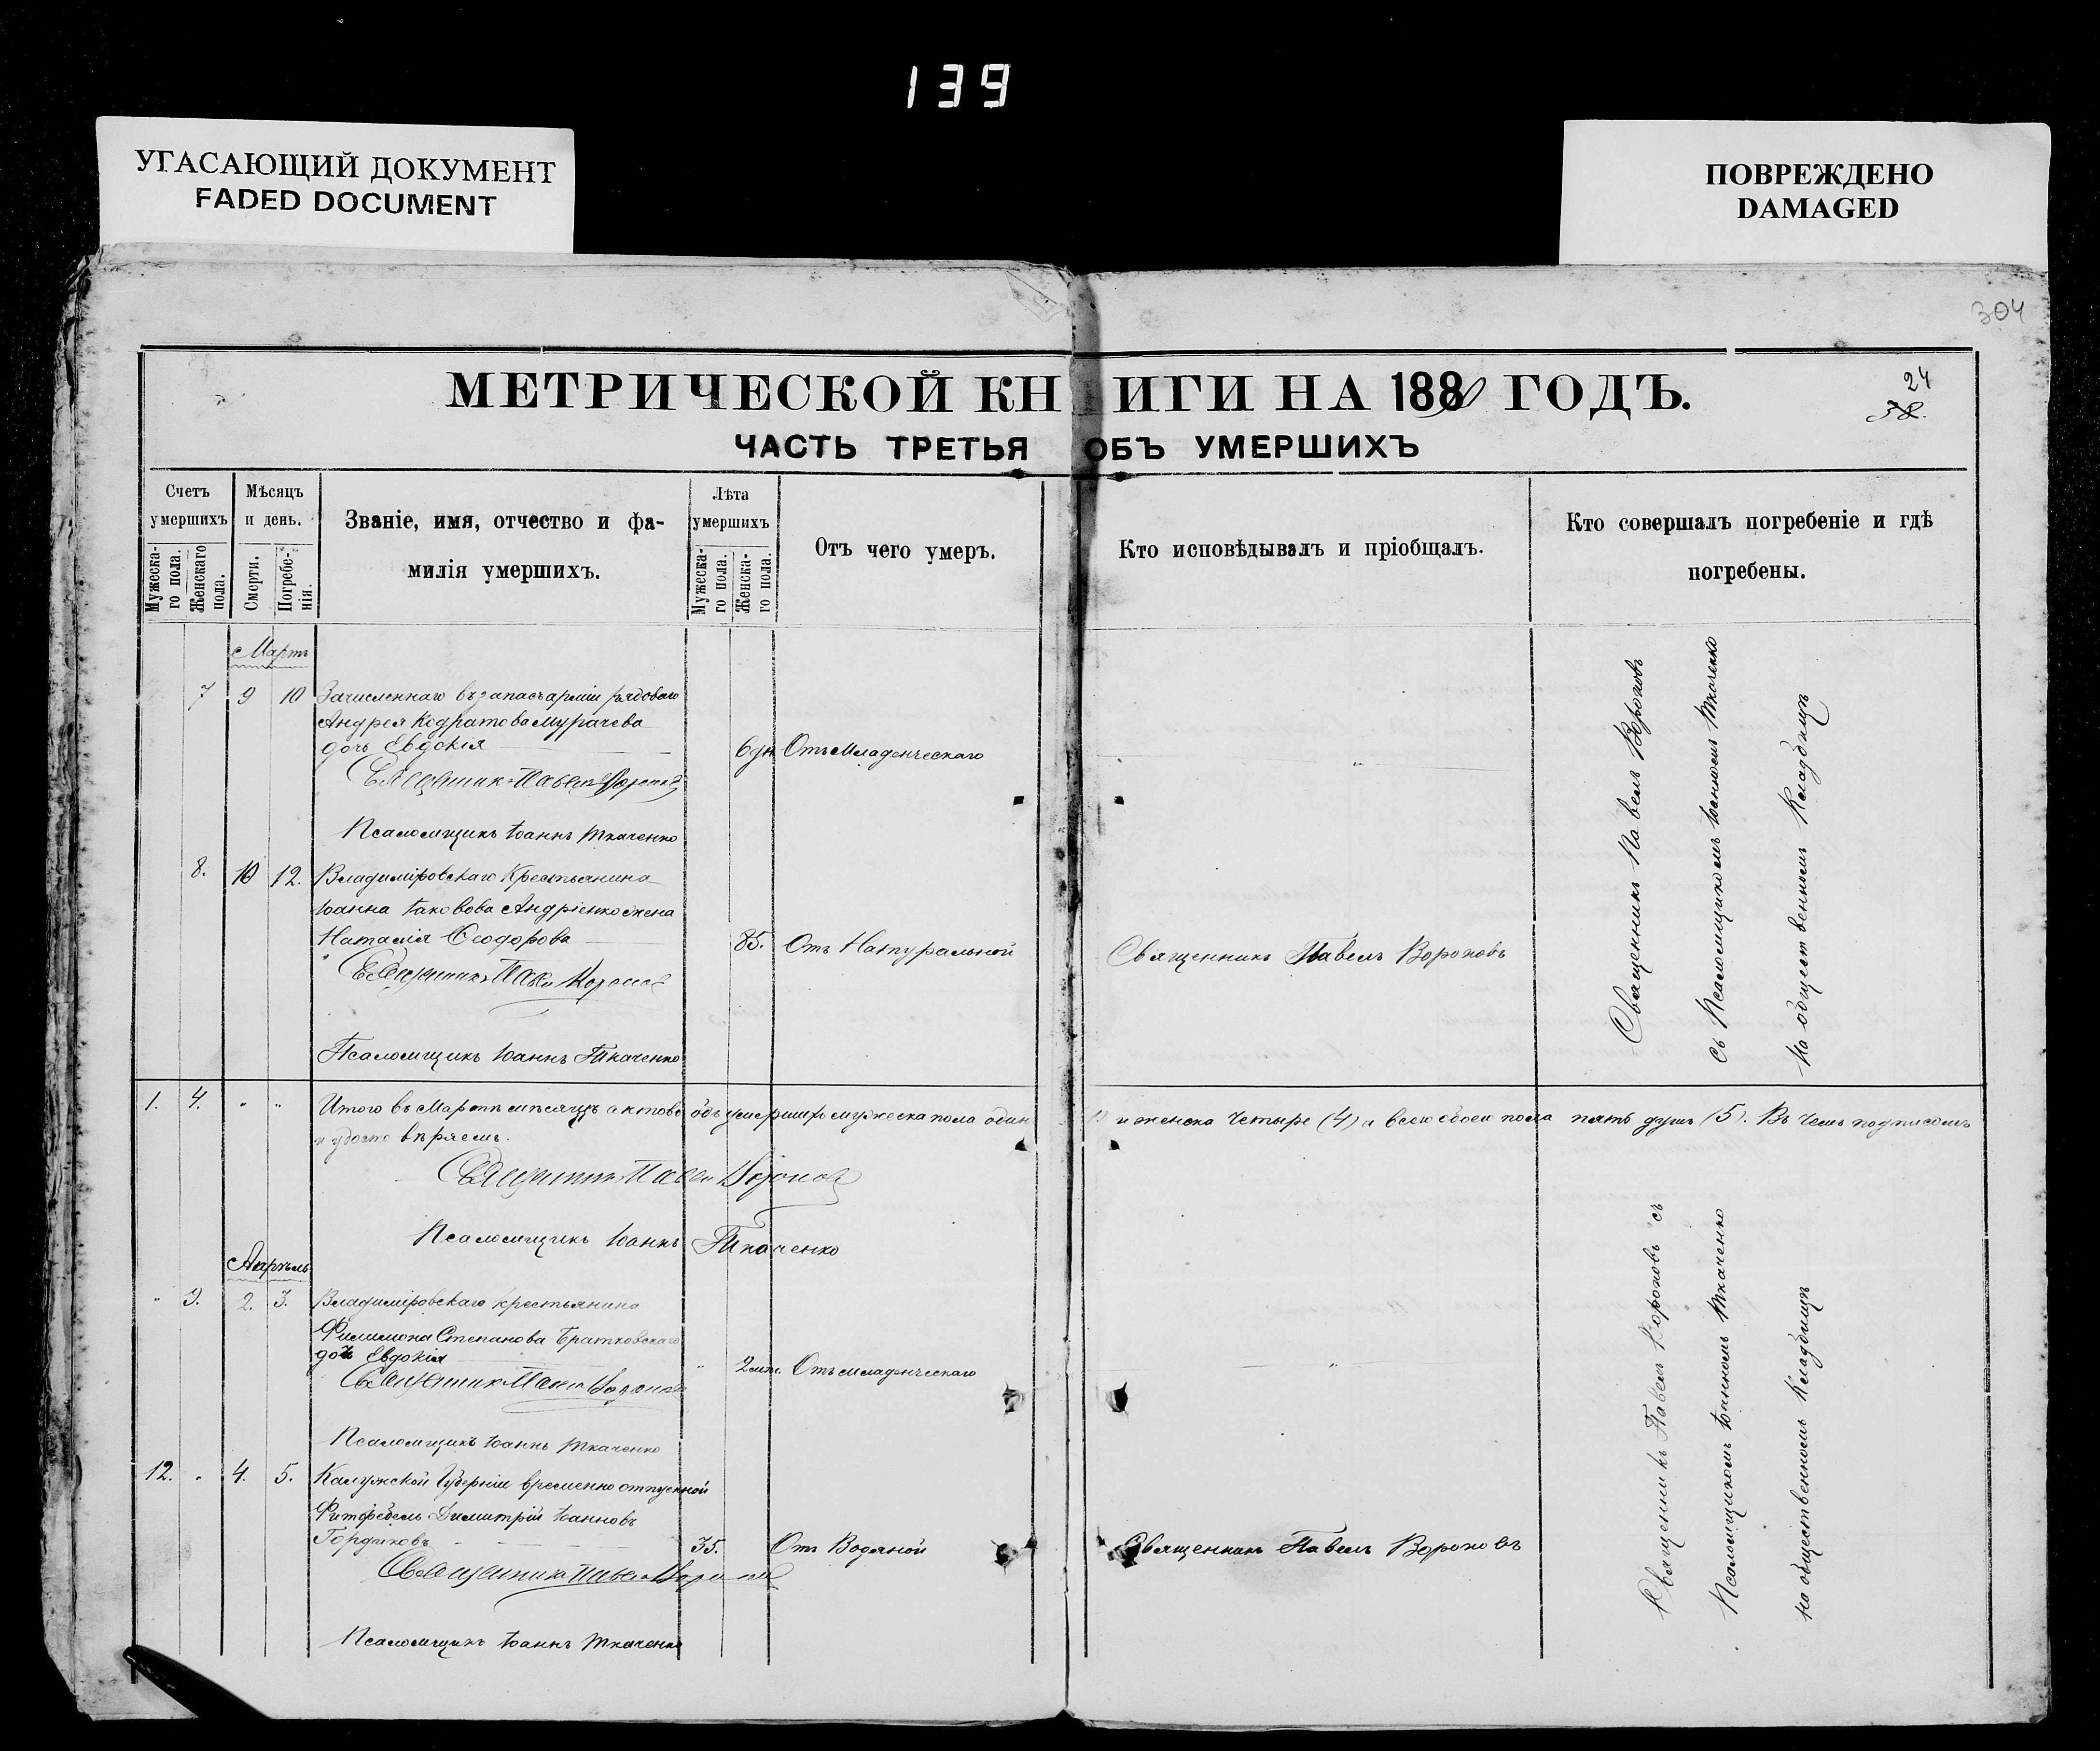 139
УГАСАЮЩИЙ ДОКУМЕНТ
FADED DOCUMENT
ПОВРЕЖДЕНО
DAMAGED
304
МЕТРИЧЕСКОЙ КНИГИ НА 1880 ГОДЪ.
24
38.
ЧАСТЬ ТРЕТЬЯ ОБЪ УМЕРШИХЪ
Счетъ умершихъ
Мужеска-го пола.
Женскаго пола.
Мѣсяцъ и день.
Смерти.
Погребе-нія.
Званіе, имя, отчество и фа-
милія умершихъ.
Лѣта умершихъ
Мужеска-го пола.
Женска-го пола.
Отъ чего умеръ.
Кто исповѣдывалъ и пріобщалъ.
Кто совершалъ погребеніе и гдѣ
погребены.
Мартъ
7 9 10 Зачисленнаго въ запасъ арміи рядоваго
Андрея Кодратова Мурачева
дочь Евдокія 6 дн. Отъ Младенческаго
Священникъ Павелъ Вороновъ
Псаломщикъ Іоаннъ Ткаченко
8. 10 12. Владиміровскаго Крестьянина
Іоанна Іаковова Андріенко жена
Наталія Ѳеодорова 85. Отъ Натуральной Священникъ Павелъ Вороновъ
Священникъ Павелъ Вороновъ
Псаломщикъ Іоаннъ Ткаченко
Священникъ Павелъ Вороновъ
съ Псаломщикомъ Іоанномъ Ткаченко
на общественномъ Кладбищѣ
1. 4. " " Итого въ Мартѣ мѣсяцѣ актовъ объ умершихъ мужеска пола одинъ и женска четыре (4) а всего обоего пола пять душъ (5). Въ чемъ подписомъ
и удосто вѣряемъ.
Священникъ Павелъ Вороновъ
Псаломщикъ Іоаннъ Ткаченко
Апрѣль
" 9. 2. 3. Владиміровскаго крестьянина
Филимона Степанова Братковскаго
дочь Евдокія " 2 мѣс. Отъ младенческаго "
Священникъ Павелъ Вороновъ
Псаломщикъ Іоаннъ Ткаченко
12. " 4. 5. Калужской Губерніи временно отпускной
Фитфебель Димитрій Іоанновъ
Гордиковъ 35. Отъ Водяной Священникъ Павелъ Вороновъ
Священникъ Павелъ Вороновъ
Псаломщикъ Іоаннъ Ткаченко
Священникъ Павелъ Вороновъ съ
Псаломщикомъ Іоанномъ Ткаченко
на общественномъ Кладбищѣ